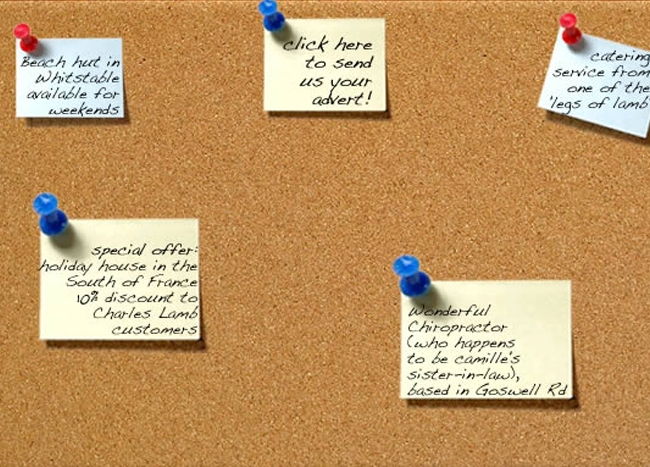 Beach hut in
Whitstable
available for
weekends
click here
to send
us your
advert!
catering
service from
one of the
'legs of lamb'
special offer:
holiday house in the
South of France
10% discount to
Charles Lamb
customers
Wonderful
Chiropractor
(who happens
to be camille's
sister-in-law),
based in Goswell Rd